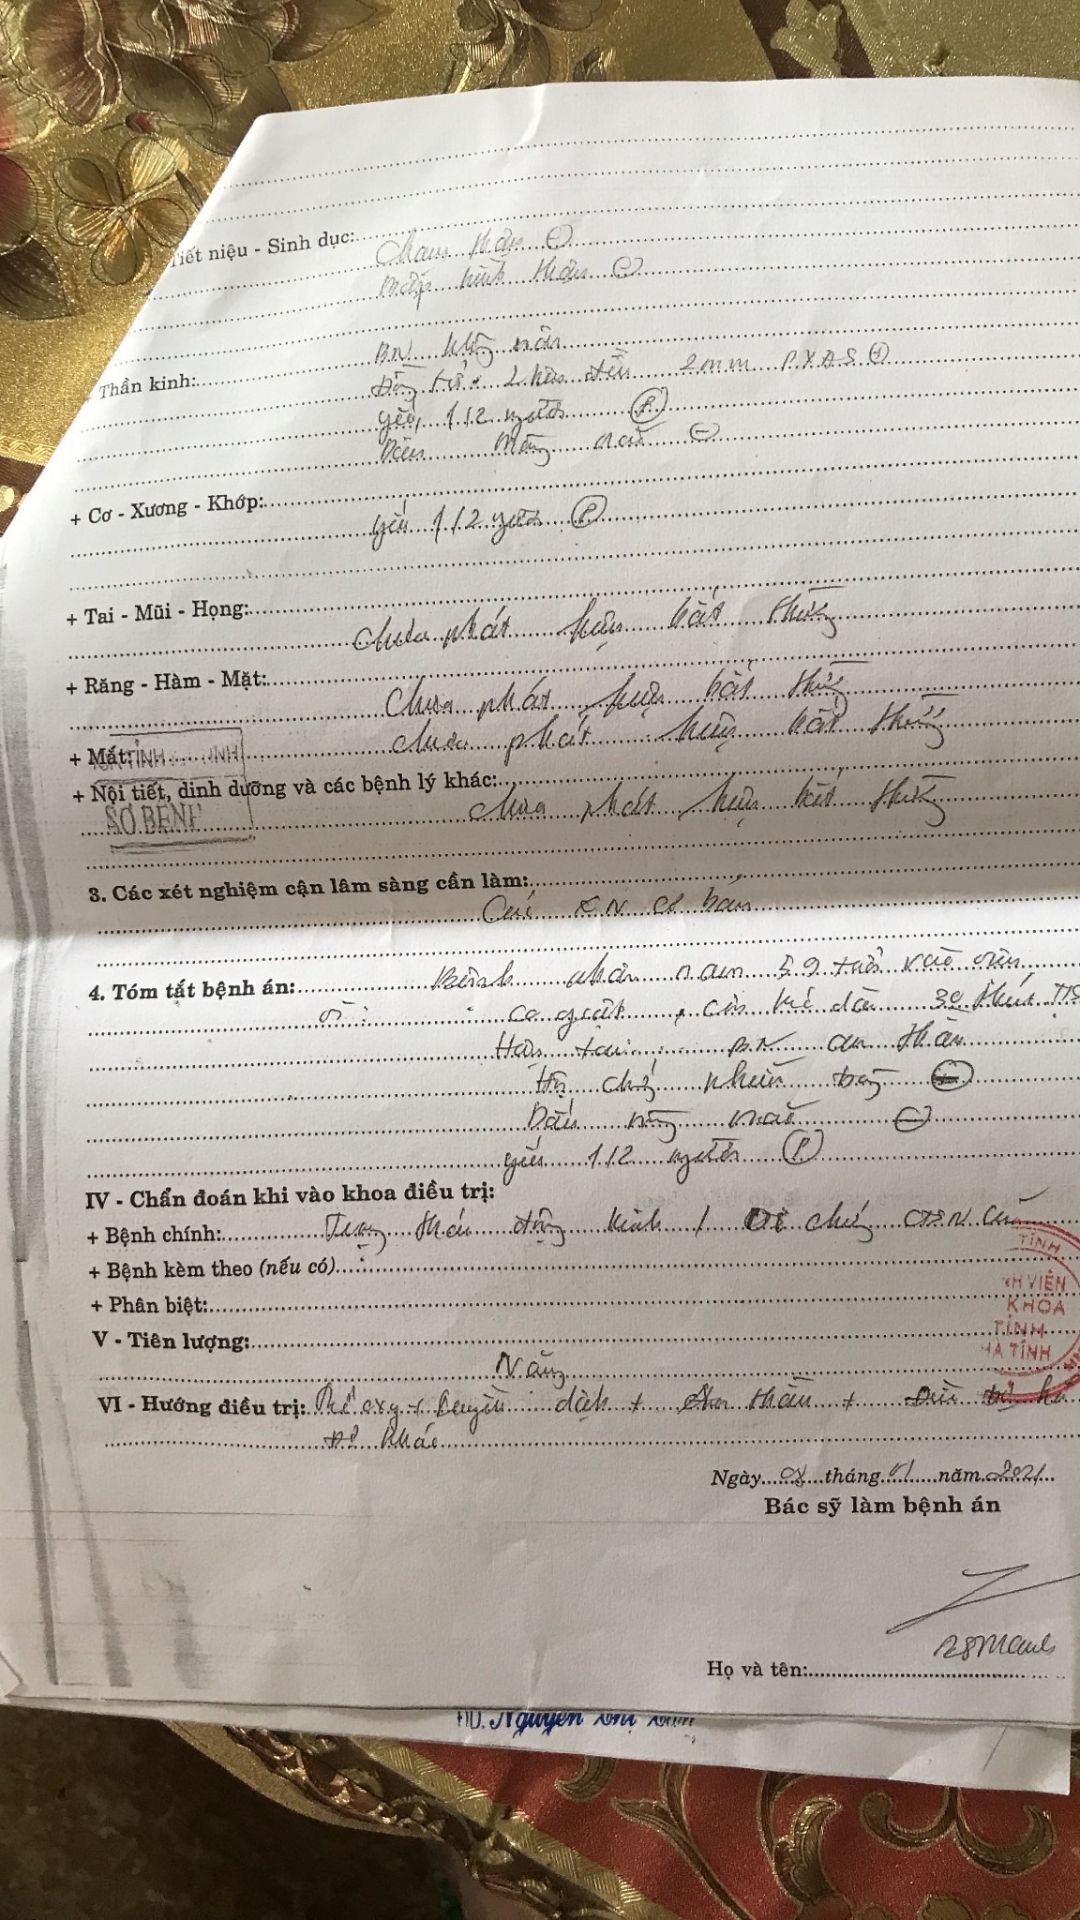 Tiết niệu - Sinh dục:
Chạm thận (-)
Bập bềnh thận (-)
Thần kinh:
BN
Đồng tử 2 bên đều 2mm PXAS (+)
yếu 1/2 người (P)
Dấu màng não (-)
+ Cơ - Xương - Khớp:
yếu 1/2 người (P)
+ Tai - Mũi - Họng:
chưa phát hiện bất thường
+ Răng - Hàm - Mặt:
chưa phát hiện bất thường
+ Mắt: chưa phát hiện bất thường
+ Nội tiết, dinh dưỡng và các bệnh lý khác:
chưa phát hiện bất thường
SƠ BỆNH
3. Các xét nghiệm cận lâm sàng cần làm:
Các XN cơ bản
4. Tóm tắt bệnh án: Bệnh nhân nam 59 tuổi vào viện
vì: co giật, cơn kéo dài 30 phút
Hiện tại: BN an thần
Hội chứng nhiễm trùng (-)
Dấu màng não (-)
yếu 1/2 người (P)
IV - Chẩn đoán khi vào khoa điều trị:
+ Bệnh chính: Trạng thái động kinh / Di chứng CTSN cũ
+ Bệnh kèm theo (nếu có)
+ Phân biệt:
V - Tiên lượng:
Nặng
VI - Hướng điều trị: Thở oxy + Truyền dịch + An thần +
khác
TỈNH
H VIỆN
KHOA
TỈNH
HÀ TĨNH
Ngày 08 tháng 01 năm 2021
Bác sỹ làm bệnh án
Họ và tên:
ĐD. Nguyễn Thị